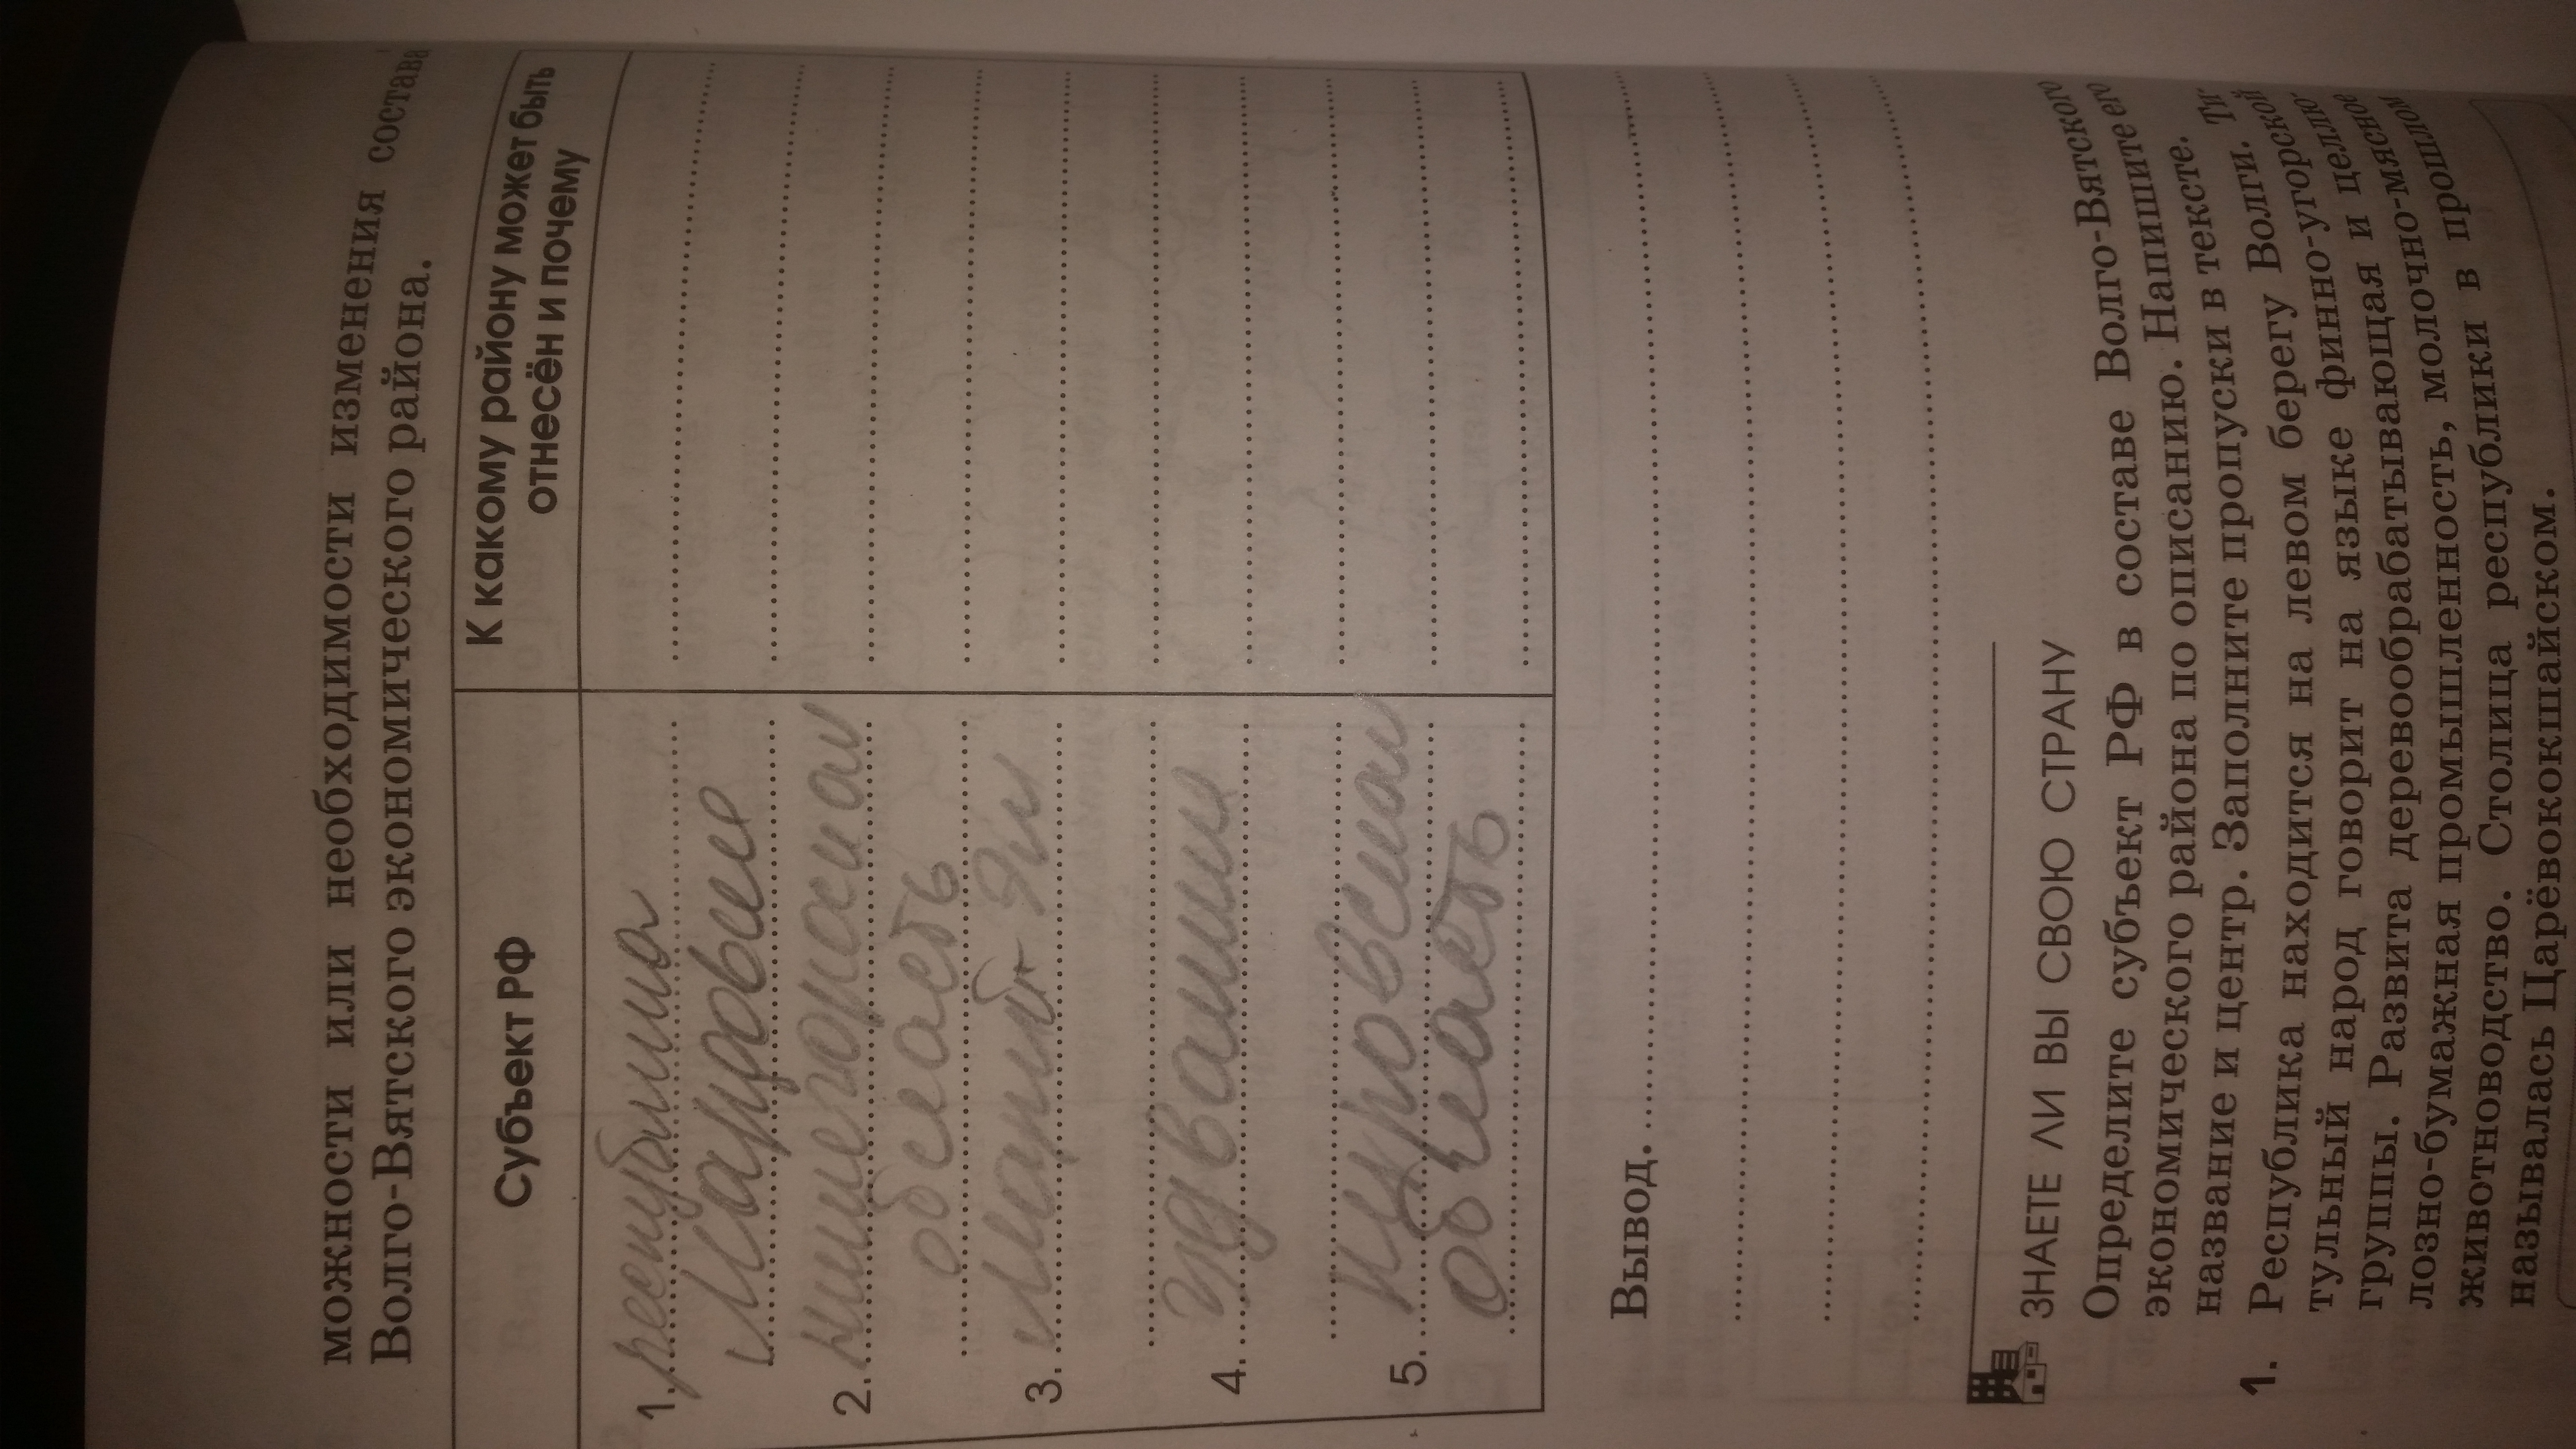 можности или необходимости изменения состава
Волго-Вятского экономического района.
Субъект РФ
К какому району может быть
отнесён и почему
1. республика
Мардовие
2. нижегорскаи
область
3. Марий Эл
4. Чуваши
5. Кировскаи
область
Вывод.
ЗНАЕТЕ ЛИ ВЫ СВОЮ СТРАНУ
Определите субъект РФ в составе Волго-Вятского
экономического района по описанию. Напишите его
название и центр. Заполните пропуски в тексте.
1. Республика находится на левом берегу Волги. Ти-
тульный народ говорит на языке финно-угорской
группы. Развита деревообрабатывающая и целлю-
лозно-бумажная промышленность, молочно-мясное
животноводство. Столица республики в прошлом
называлась Царёвококшайском.